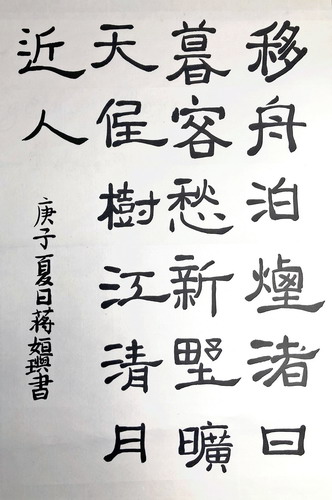 移舟泊煙渚日
暮客愁新野曠
天低樹江清月
近人
庚子夏日蔣姮璵書